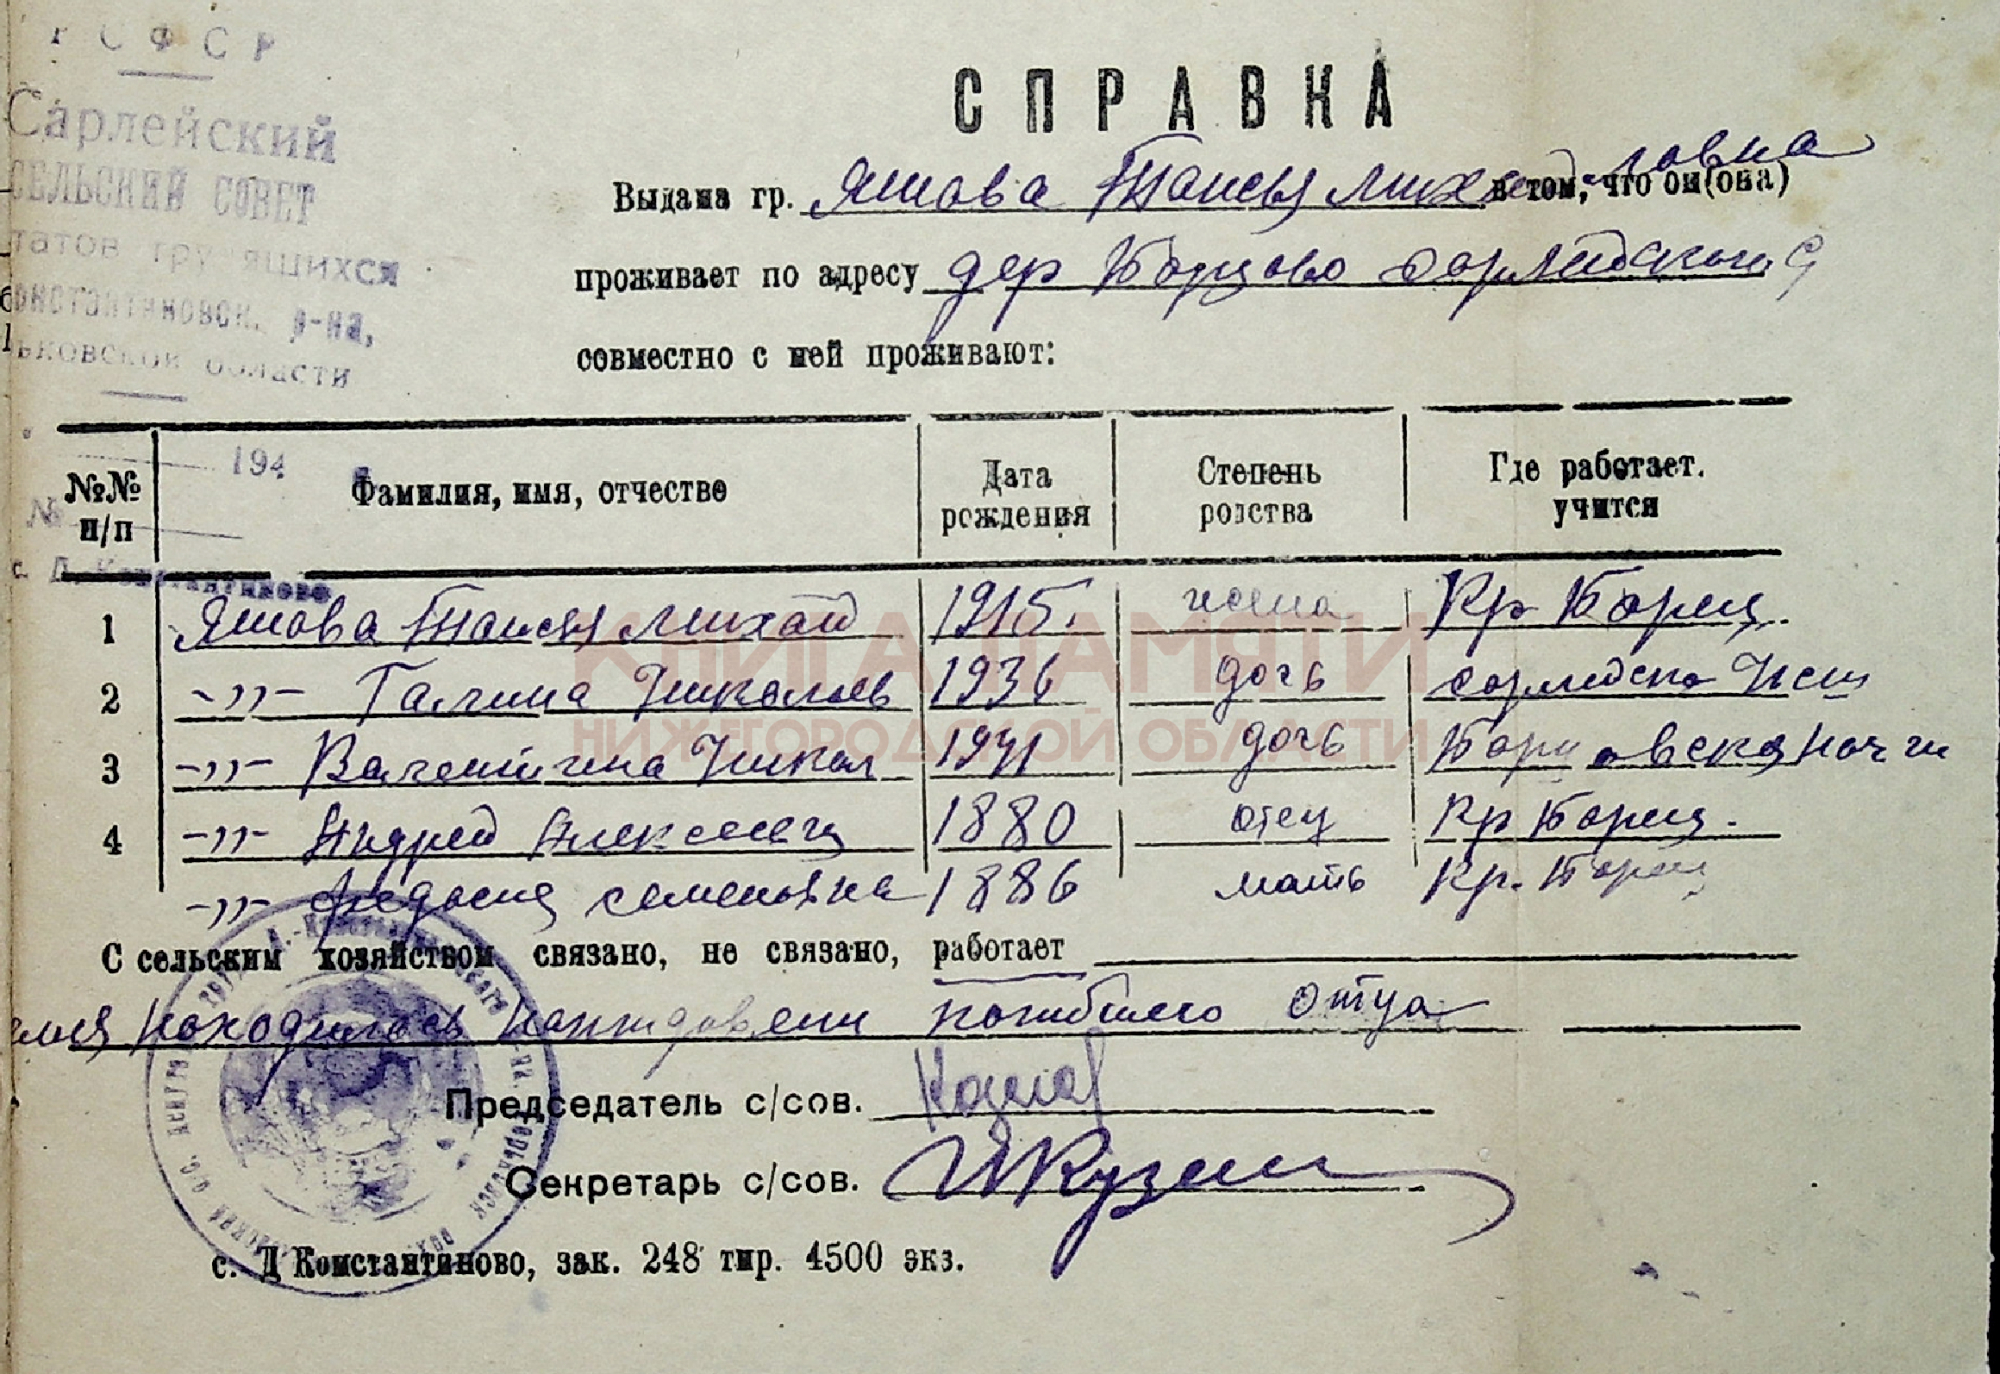 РСФСР
Сарлейский
СЕЛЬСКИЙ СОВЕТ
татов трудящихся
онстантиновск. р-на,
ьковской области
194
№
с. Д. Константиново
СПРАВКА
Выдана гр. Яшова Таисья Михайловна в том, что он(она)
проживает по адресу дер Борцово Сарлейского с
совместно с ней проживают:
№№ п/п Фамилия, имя, отчество Дата рождения Степень родства Где работает. учится
1 Яшова Таисья Михайл 1915 жена Кр Борец.
2 -"- Галина Николаев 1936 дочь Сарлейска
3 -"- Валентина Никол 1941 дочь
4 -"- Андрей Алексеевич 1880 отец Кр Борец.
-"- Федосия Семеновна 1886 мать Кр. Борец
С сельским хозяйством связано, не связано, работает
находилась погибшего отца
Председатель с/сов.
Секретарь с/сов. Кузен
с. Д Константиново, зак. 248 тир. 4500 экз.
КНИГА ПАМЯТИ
НИЖЕГОРОДСКОЙ ОБЛАСТИ